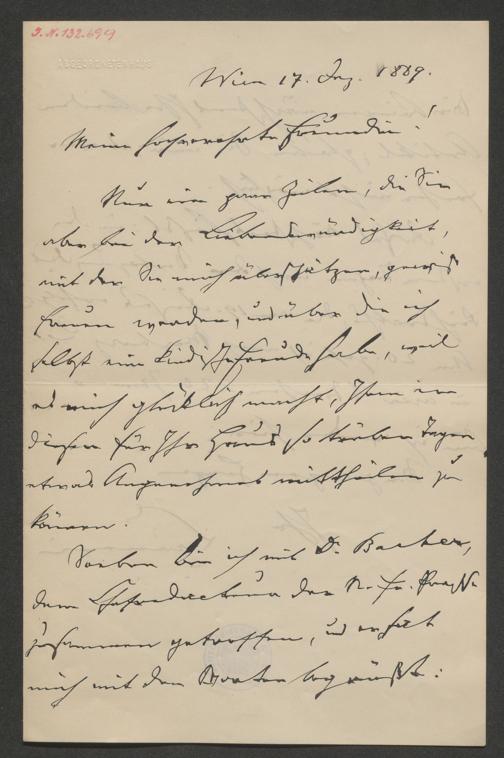 J.N. 132.699
ABGEORDNETENHAUS
Wien 17. Dez. 1889.
Meine hochverehrte Freundin!
Nur ein paar Zeilen, die Sie
aber bei der Liebenswürdigkeit,
mit der Sie mich überschätzen, gewiß
freuen werden, und über die ich
selbst eine kindische Freude habe, weil
es mich glücklich macht, Ihnen in
diesen für Ihr Haus so trüben Tagen
etwas Angenehmes mittheilen zu
können.
Soeben bin ich mit Dr. Bacher,
dem Chefredacteur der N. fr. Presse
zusammen getroffen, und er hat
mich mit den Worten begrüßt: